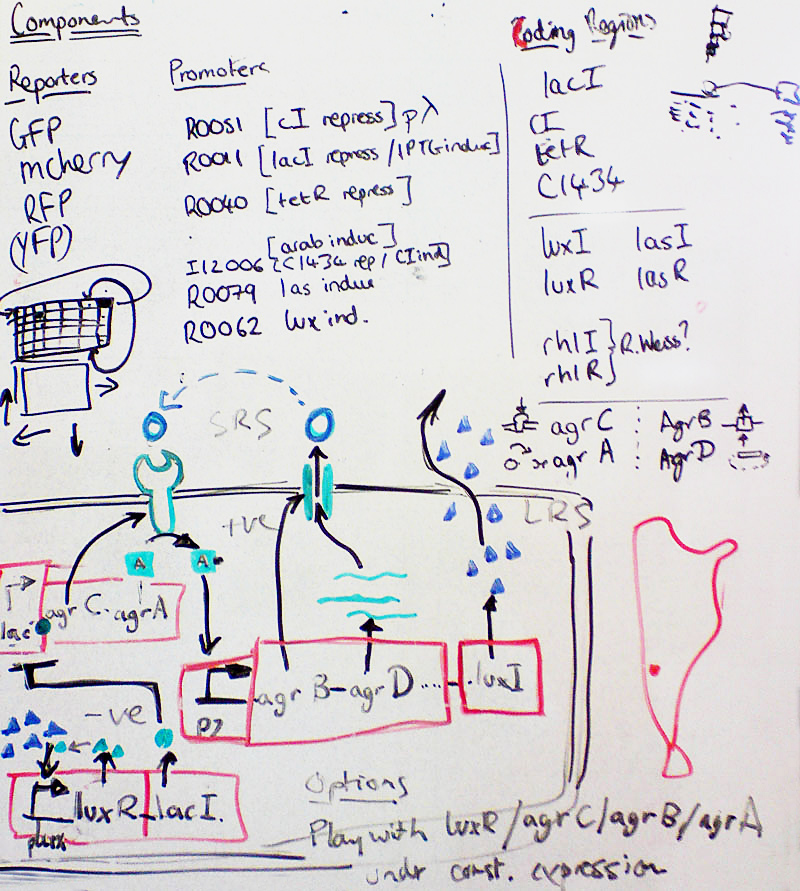 Components
Reporters
GFP
mcherry
RFP
(YFP)
Promoters
R0051 [cI repress] pλ
R0011 [lacI repress / IPTG induc]
R0040 [tetR repress]
[arab induc]
I12006 [C1434 rep / CI ind]
R0079 las induc
R0062 lux ind.
Coding Regions
lacI
CI
tetR
C1434
luxI lasI
luxR lasR
rhlI } R.Weiss?
rhlR
agrC : AgrB
agrA : AgrD
SRS
+ve
LRS
A
A
agrC. agrA
lac
agrB-agrD .... luxI
P2
-ve
luxR-lacI.
plux
Options
Play with luxR/agrC/agrB/agrA
undr const. expression